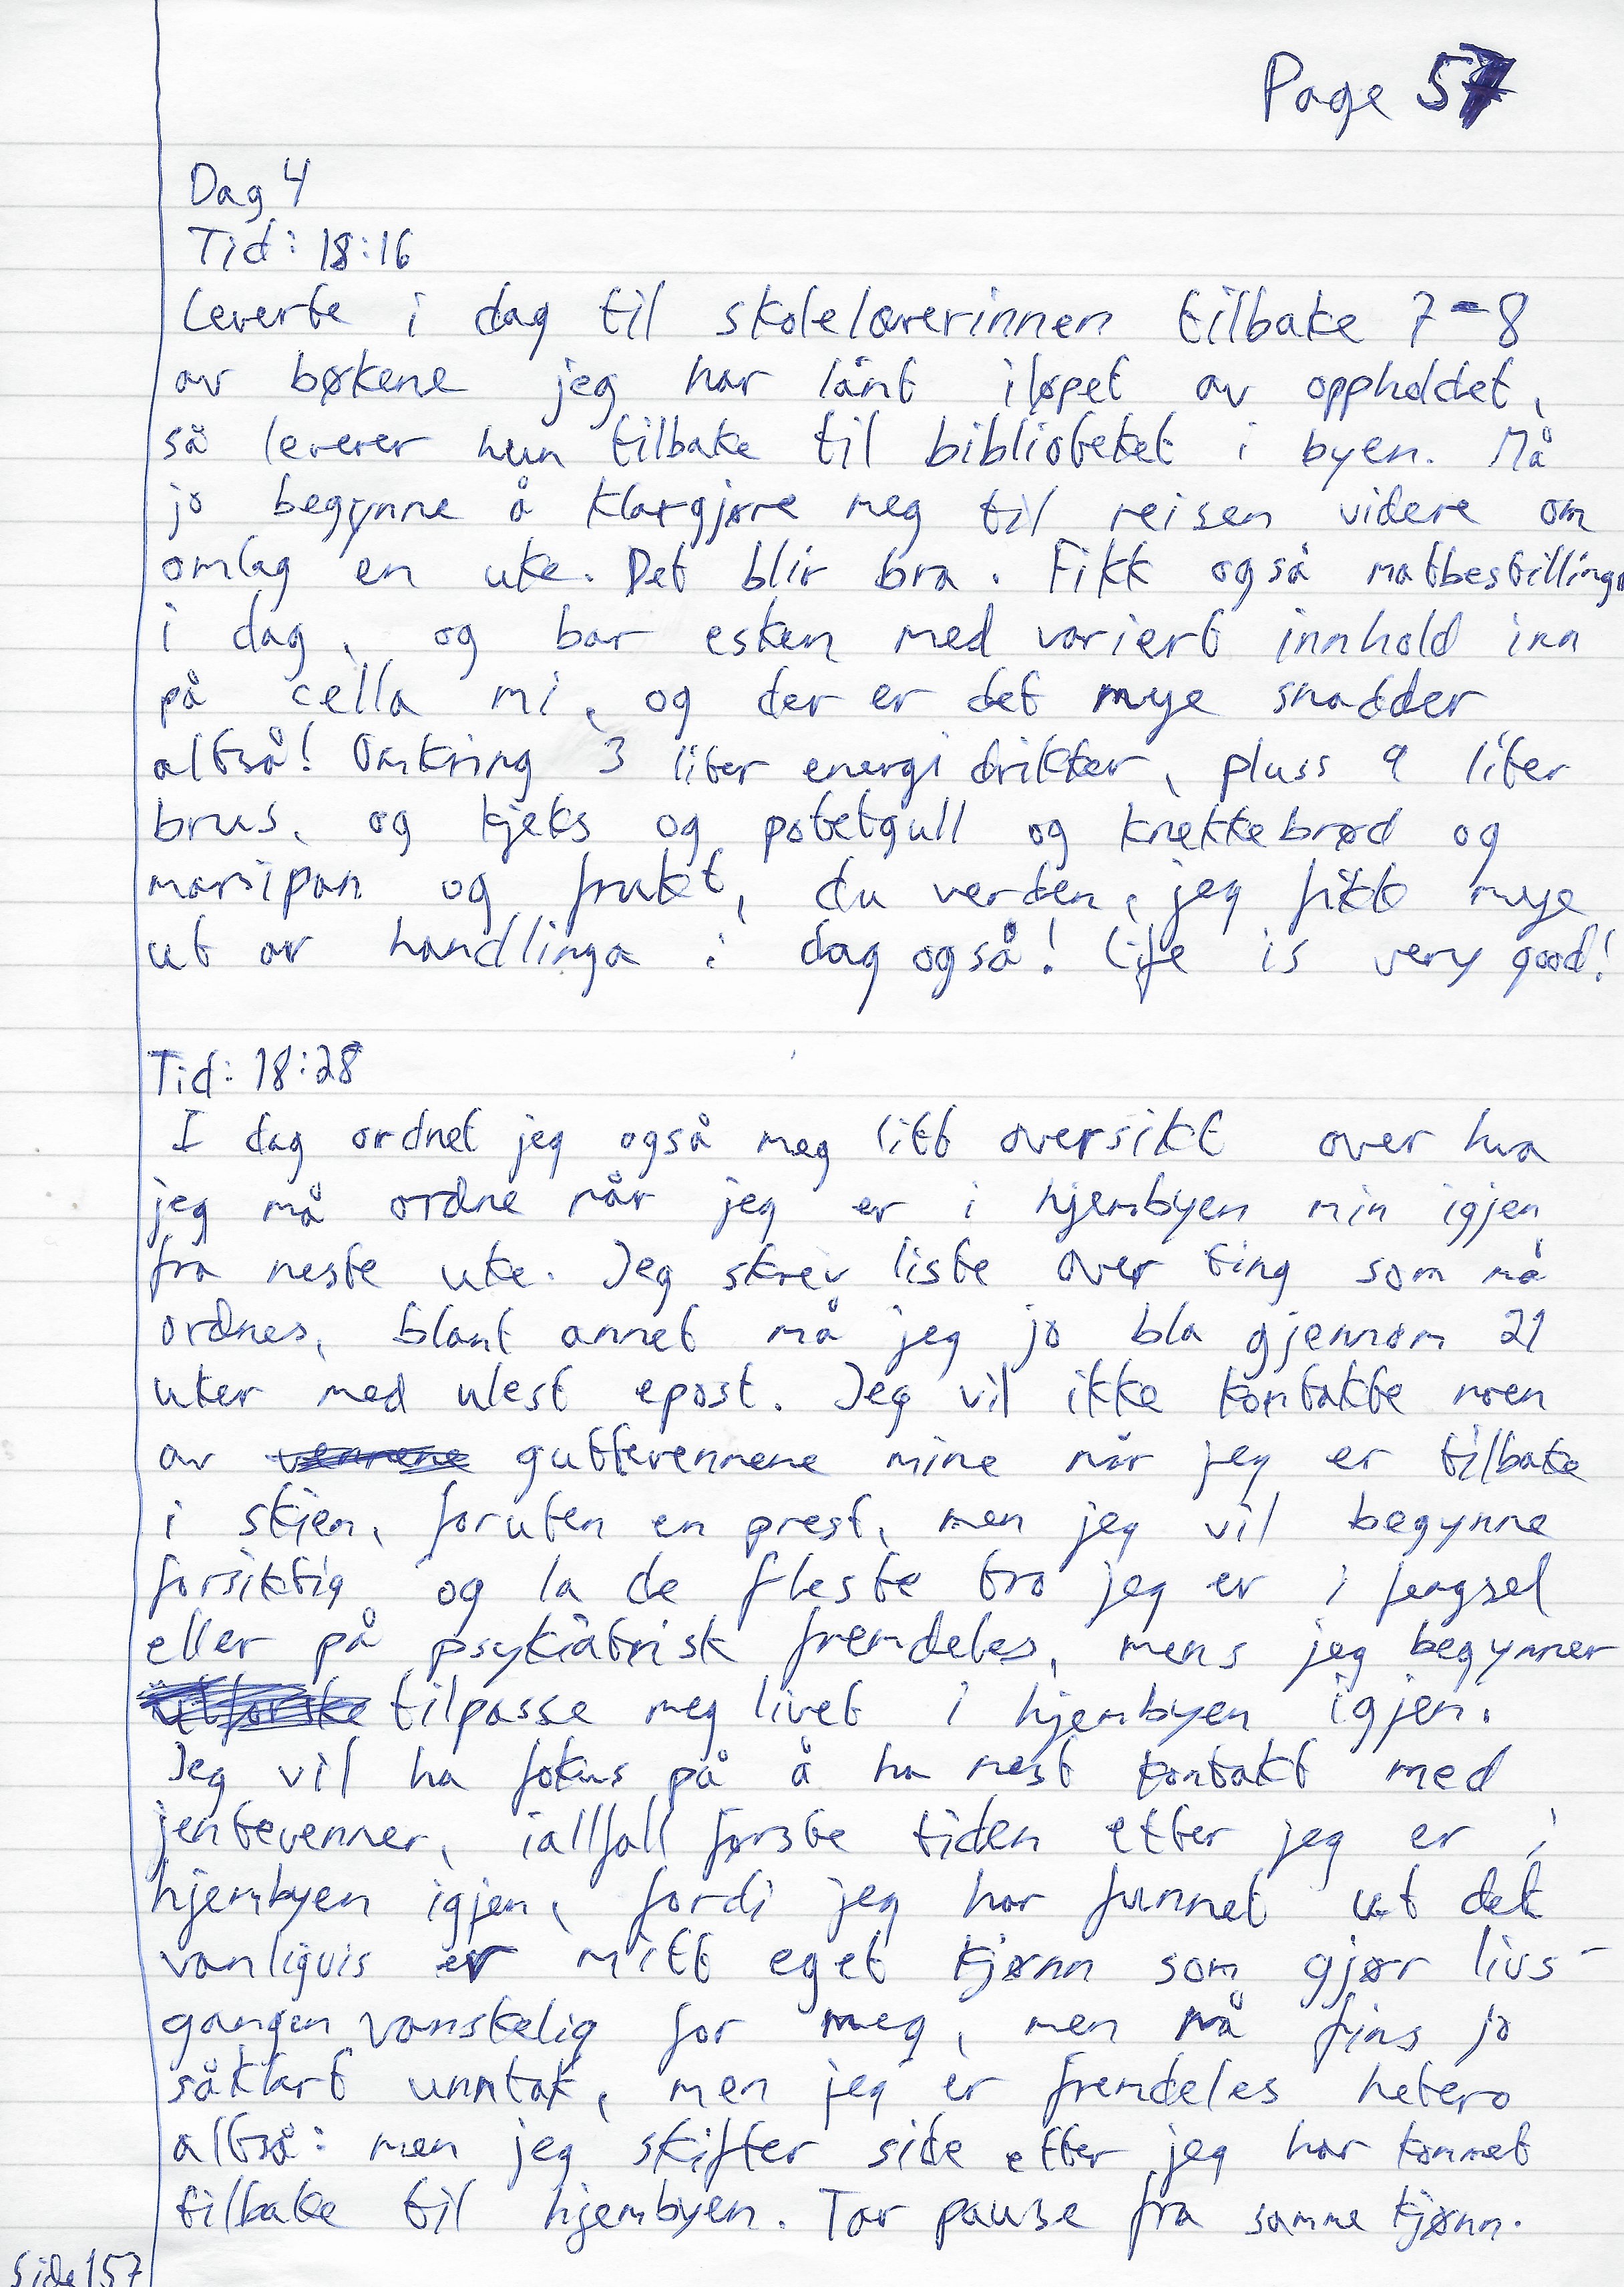 Page 57
Dag 4
Tid: 18:16
Leverte i dag til skolelærerinnen tilbake 7-8
av bøkene jeg har lånt iløpet av oppholdet,
så leverer hun tilbake til biblioteket i byen. Må
jo begynne å klargjøre meg til reisen videre om
omlag en uke. Det blir bra. Fikk også matbestillinga
i dag, og bar esken med variert innhold inn
på cella mi, og der er det mye snadder
altså! Omkring 3 liter energi drikker, pluss 9 liter
brus, og kjeks og potetgull og knekkebrød og
marsipan og frukt, du verden, jeg fikk mye
ut av handlinga i dag også! Life is very good!
Tid: 18:28
I dag ordnet jeg også meg litt oversikt over hva
jeg må ordne når jeg er i hjembyen min igjen,
fra neste uke. Jeg skrev liste over ting som må
ordnes, blant annet må jeg jo bla gjennom 21
uker med ulest epost. Jeg vil ikke kontakte noen
av vennene guttevennene mine når jeg er tilbake
i skien, foruten en prest, men jeg vil begynne
forsiktig og la de fleste tro jeg er i fengsel
eller på psykiatrisk fremdeles, mens jeg begynner
utforske tilpasse meg livet i hjembyen igjen.
Jeg vil ha fokus på å ha mest kontakt med
jentevenner, iallfall første tiden etter jeg er i
hjembyen igjen, fordi jeg har funnet ut det
vanligvis er mitt eget kjønn som gjør livs-
gangen vanskelig for meg, men nå fins jo
såklart unntak, men jeg er fremdeles hetero
altså: men jeg skifter side etter jeg har kommet
tilbake til hjembyen. Tar pause fra samme kjønn.
Side 157